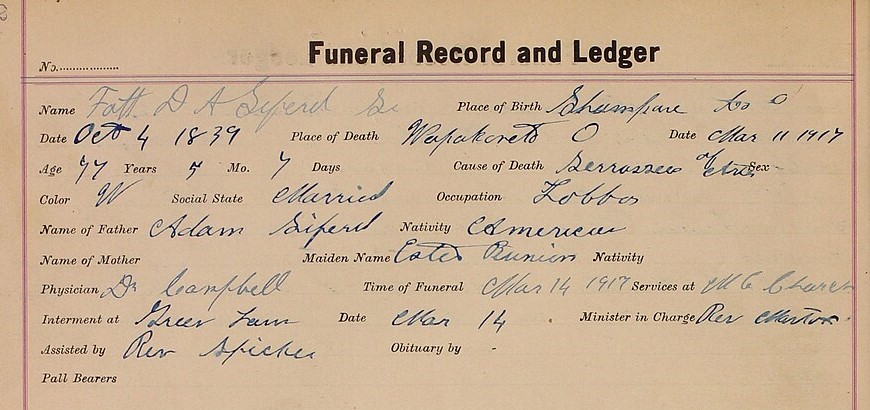 Funeral Record and Ledger
No.
Name Fath D A Siferd Sr Place of Birth Shampare Co O
Date Oct 4 1839 Place of Death Wapakoneto O Date Mar 11 1917
Age 77 Years 5 Mo. 7 Days Cause of Death of Sex
Color W Social State Married Occupation
Name of Father Adam Siferd Nativity American
Name of Mother Maiden Name Nativity
Physician Dr Campbell Time of Funeral Mar 14 1917 Services at M E Church
Interment at Date Mar 14 Minister in Charge Rev
Assisted by Rev Spicher Obituary by -
Pall Bearers